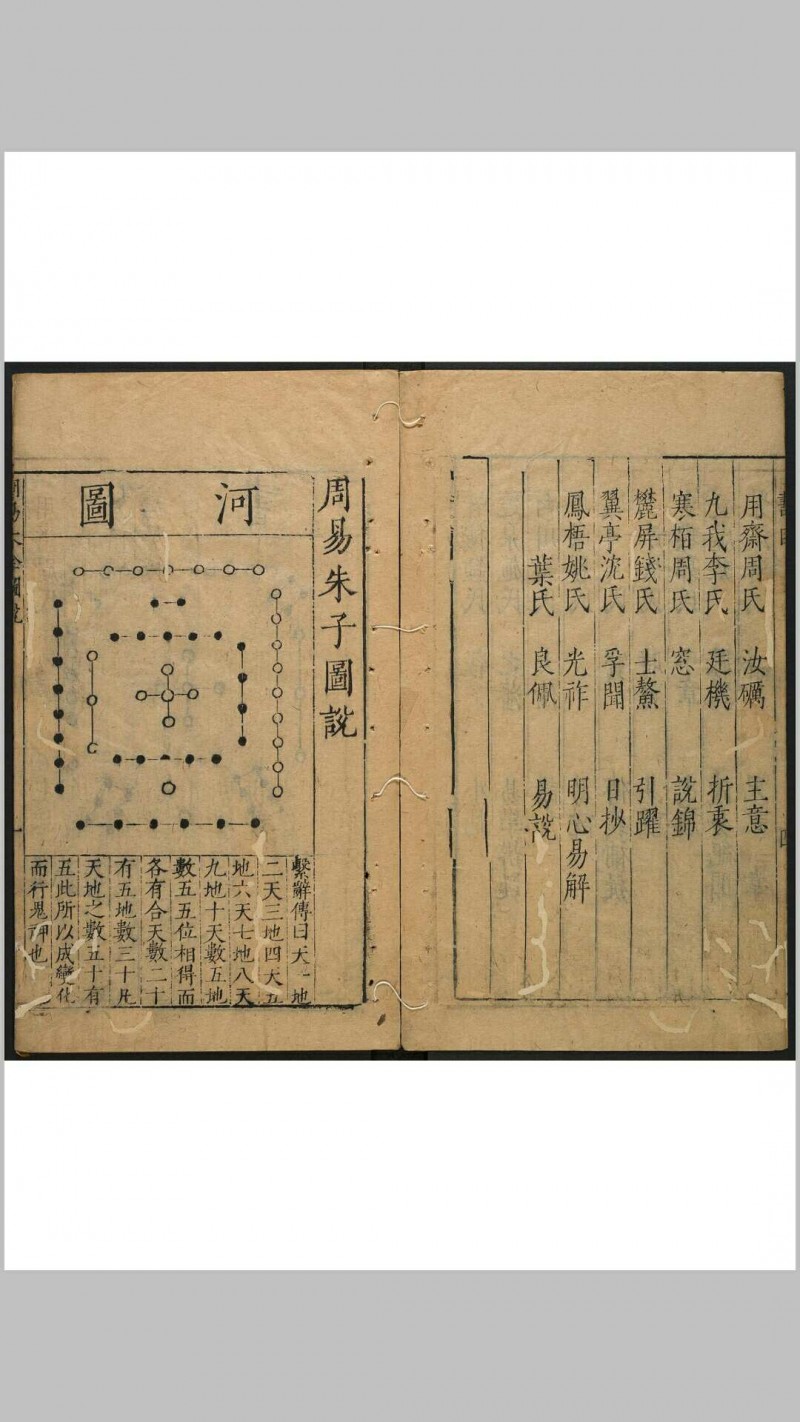 用齋周氏 汝礪 主意
九我李氏 廷機 折衷
寒栢周氏 窓 說錦
麓屏錢氏 士鰲 引躍
翼亭沈氏 孚聞 日抄
鳳梧姚氏 光祚 明心易解
葉氏 良佩 易說
周易朱子圖說
河圖
繫辭傳曰天一地
二天三地四天五
地六天七地八天
九地十天數五地
數五五位相得而
各有合天數二十
有五地數三十凡
天地之數五十有
五此所以成變化
而行鬼神也